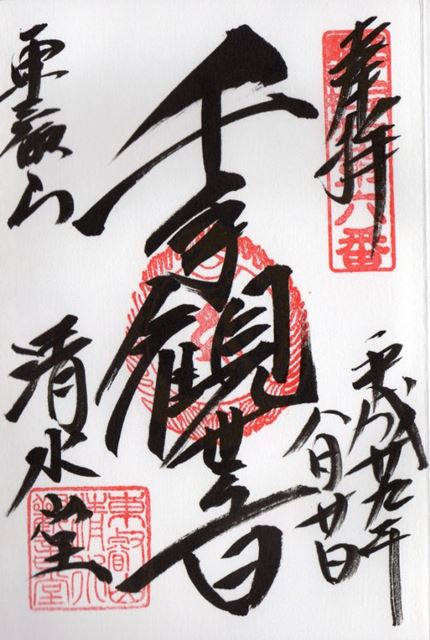 奉拝
六番
平成廿九年
八月廿日
千手観世音
東叡山
清水堂
東叡山
清水